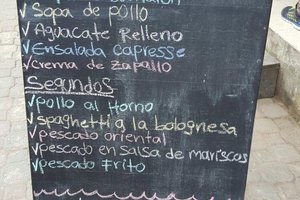 ✓Sopa de pollo
✓Aguacate Relleno
✓Ensalada capresse
✓crema de zapallo
Segundos
✓pollo al Horno
✓spaghetti a la bolognesa
✓pescado oriental
✓pescado en salsa de mariscos
✓pescado Frito